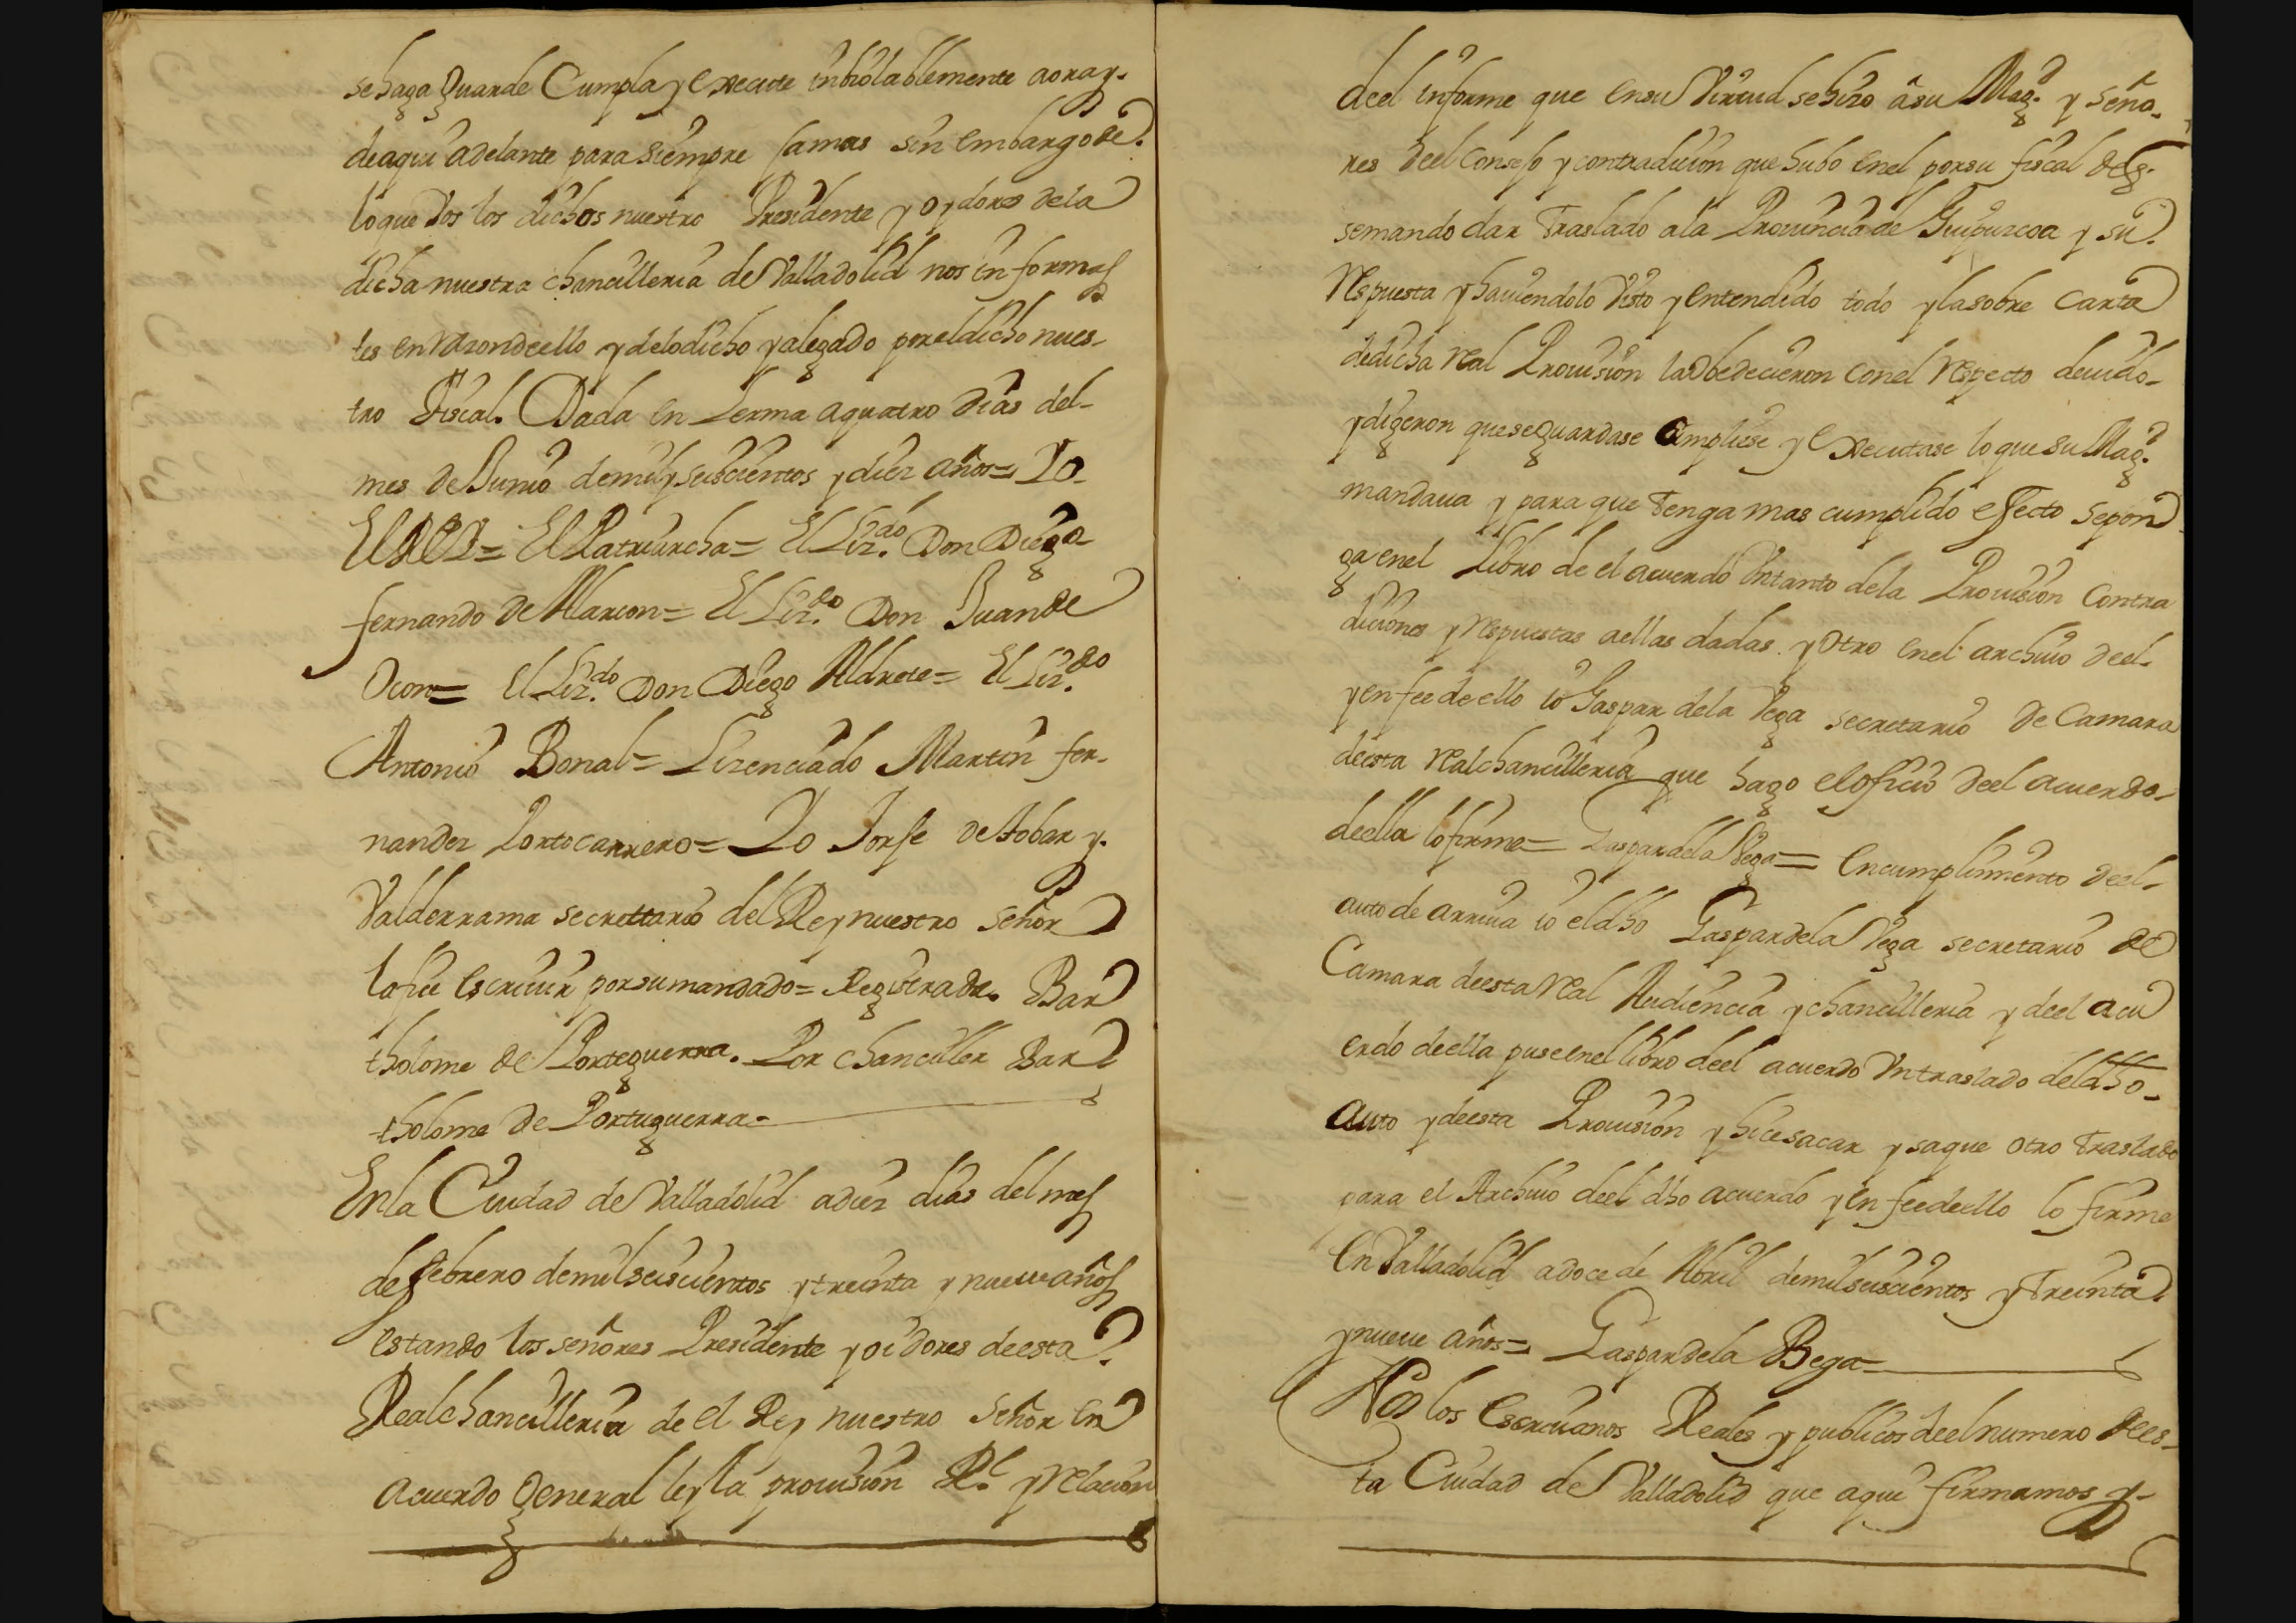 se haga Guarde Cumpla y Execute inbiolablemente aora y.
de aqui adelante para siempre jamas sin embargo de
lo que Vos los dichos nuestro Presidente y oydores dela
dicha nuestra chancilleria de Valladolid nos informas
tes en Razon deello y delo dicho y alegado por el dicho nues-
tro Fiscal. Dada en Lerma a quatro dias del-
mes de Junio de mil y seiscientos y diez años= Yo-
El REY= El Patriarcha= El Liz.do Don Diego
fernando de Alarcon= El Liz.do Don Juan de
Ocon= El Liz.do Don Diego Aldrete= El Liz.do
Antonio Bonal= Lizenciado Martin fer-
nandez Portocarrero= Yo Jorje de tobar y.
Valderrama secrettario del Rey nuestro señor
la fiz escriuir por su mandado= Registrada. Bar
tholome de Porteguerra. Por chanciller Bar
tholome de Portuguerra-
En la Ciudad de Valladolid a diez dias del mes
de febrero de mil seiscientos y treinta y nueue años
estando los señores Presidente y oidores de esta
Real chancilleria de el Rey nuestro señor en
acuerdo General ley la prouision R.l y Relacion
deel informe que en su Virtud se hizo â su Mag.d y seño-
res deel Consejo y contradicion que hubo en el por su fiscal de q.
se mando dar traslado a la Prouincia de Guipuzcoa y su
Respuesta y hauiendolo Visto y entendido todo y la sobre carta
de dicha Real Prouision la obedecieron con el Respecto deuido-
y digeron que se guardase Cumpliese y Executase lo que su Mag.d
mandaua y para que tenga mas cumplido efecto se pon
ga en el Libro de el acuerdo Vn tanto de la Prouision Contra
diciones y Respuestas a ellas dadas. y otro en el archiuo deel-
y en fee de ello io Gaspar de la Vega secretario de Camara
de esta Real chancilleria que hago el oficio deel acuerdo-
de ella lo firme= Gaspar de la Vega= En cumplimiento deel-
auto de arriua io el dho Gaspar de la Vega secretario de
Camara de esta Real Audiencia y chancilleria y deel acu
erdo de ella puse en el libro deel acuerdo Vn traslado del dho-
auto y de esta Prouision y hice sacar y saque otro traslado
para el Archiuo deel dho acuerdo y en fee de ello lo firme
en Valladolid a doce de Abril de mil seiscientos y treinta
y nueue años= Gaspar de la Bega-
Nos los Escriuanos Reales y publicos deel numero de es-
ta Ciudad de Valladolid que aqui firmamos y-